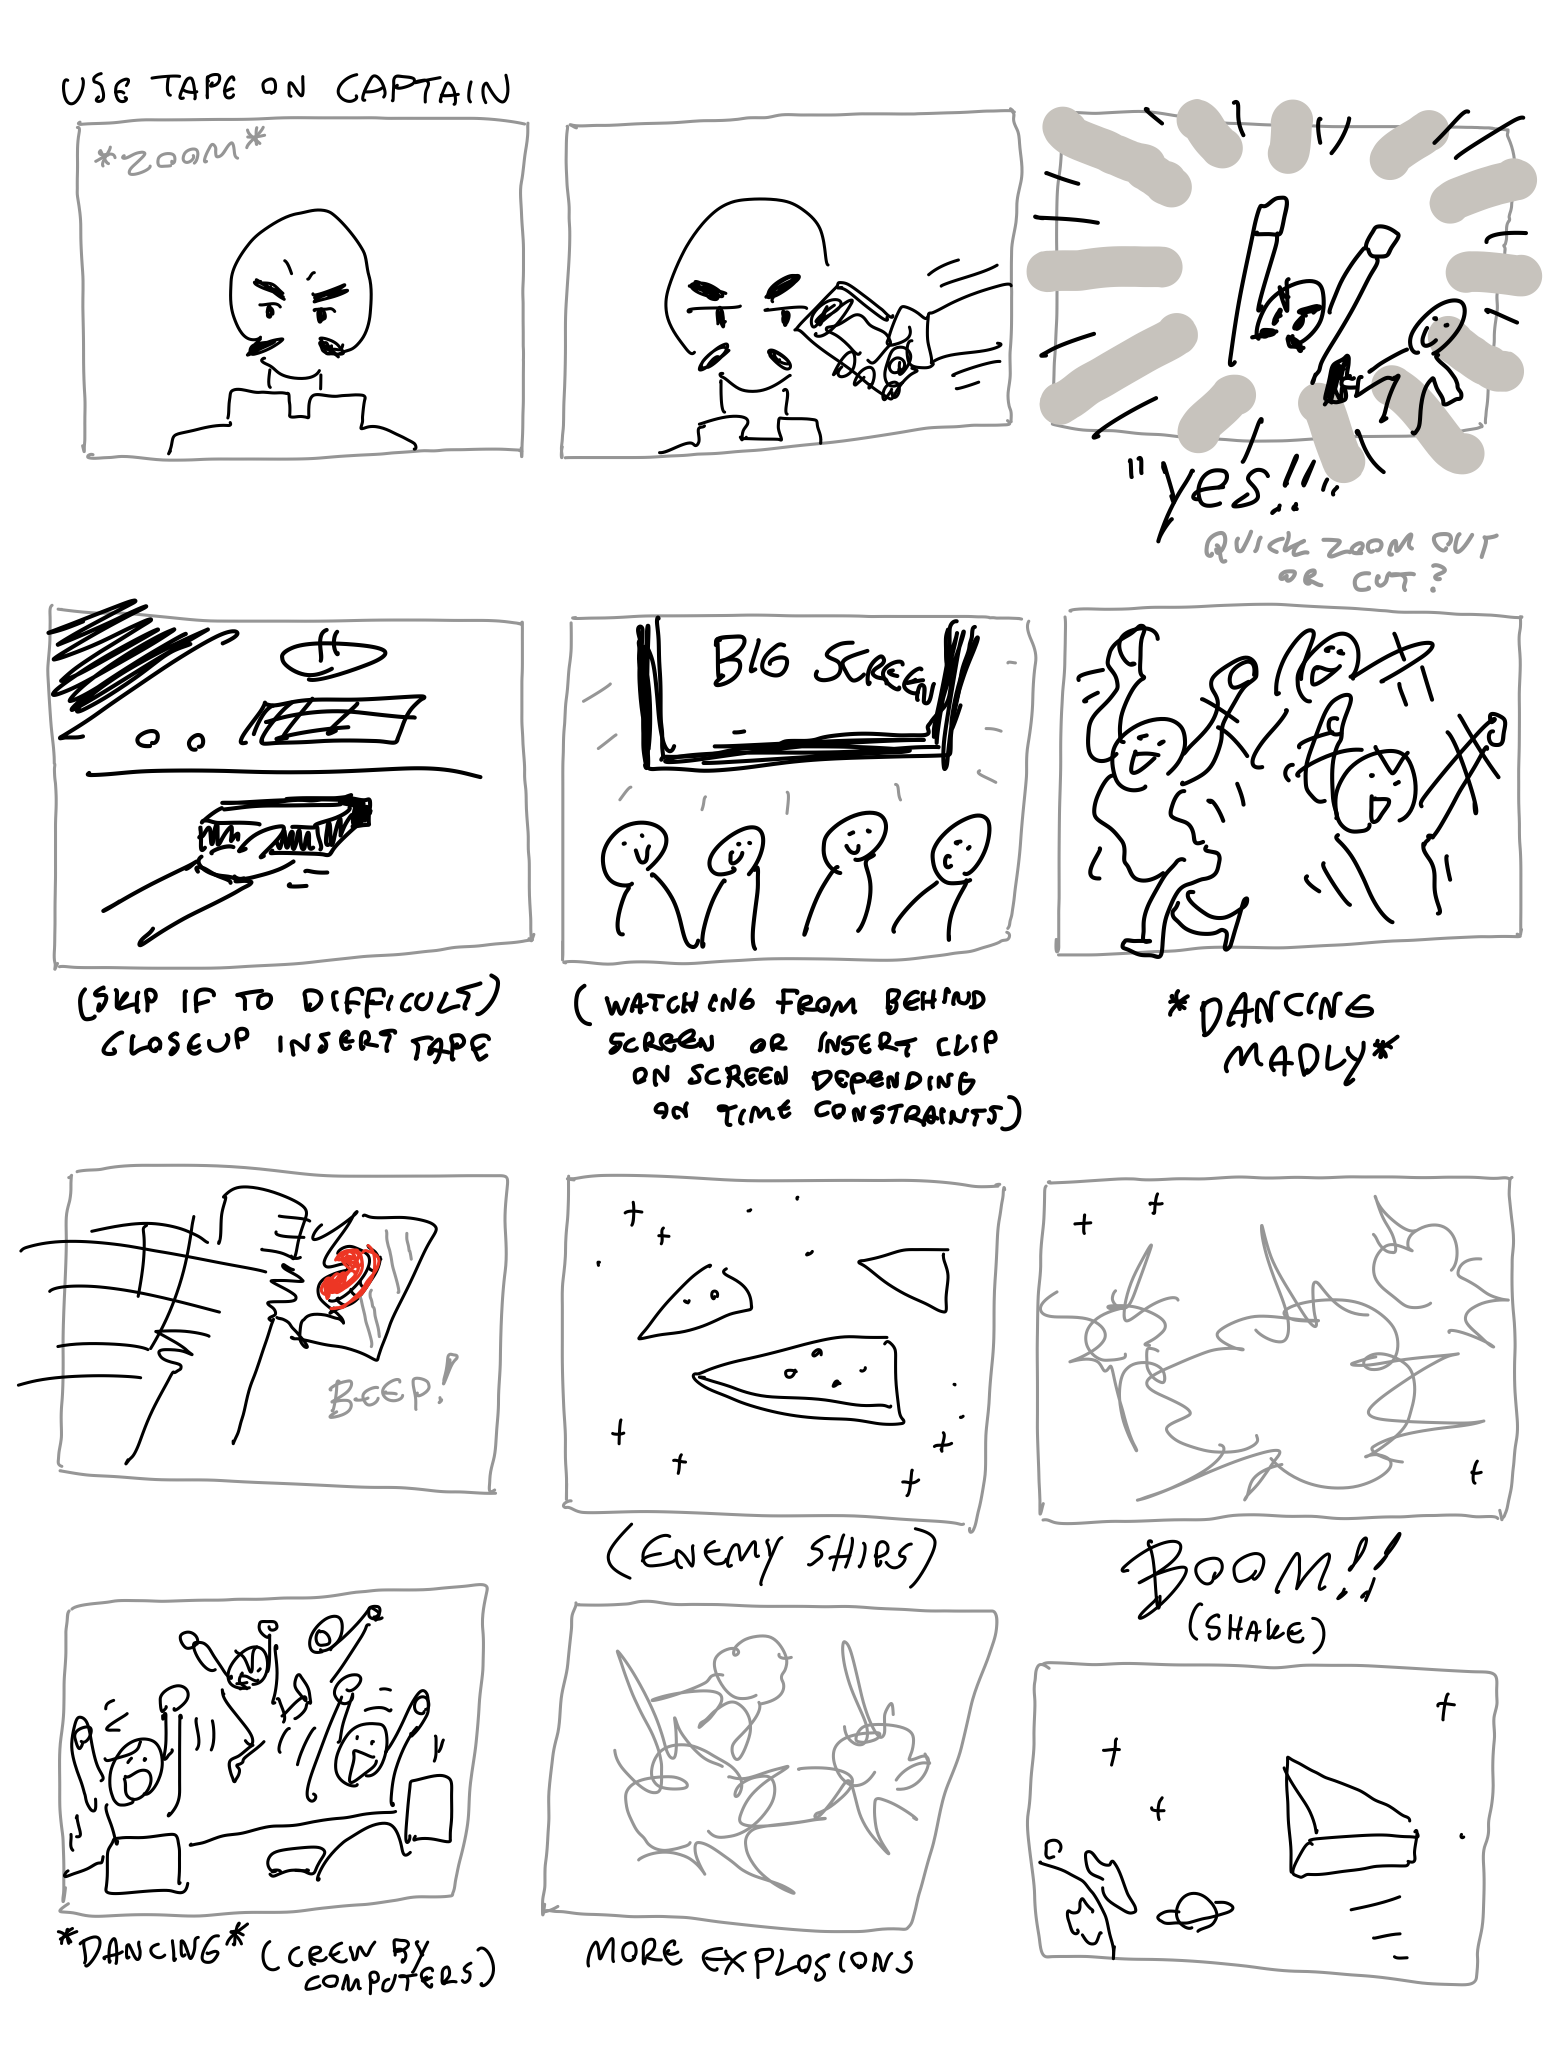 USE TAPE ON CAPTAIN
*ZOOM*
"yes!!"
QUICK ZOOM OUT
OR CUT?
BIG SCREEN
(SKIP IF TO DIFFICULT)
CLOSEUP INSERT TAPE
(WATCHING FROM BEHIND
SCREEN OR INSERT CLIP
ON SCREEN DEPENDING
ON TIME CONSTRAINTS)
*DANCING
MADLY*
BEEP!
(ENEMY SHIPS)
BOOM!!
(SHAKE)
*DANCING* (CREW BY
COMPUTERS)
MORE EXPLOSIONS